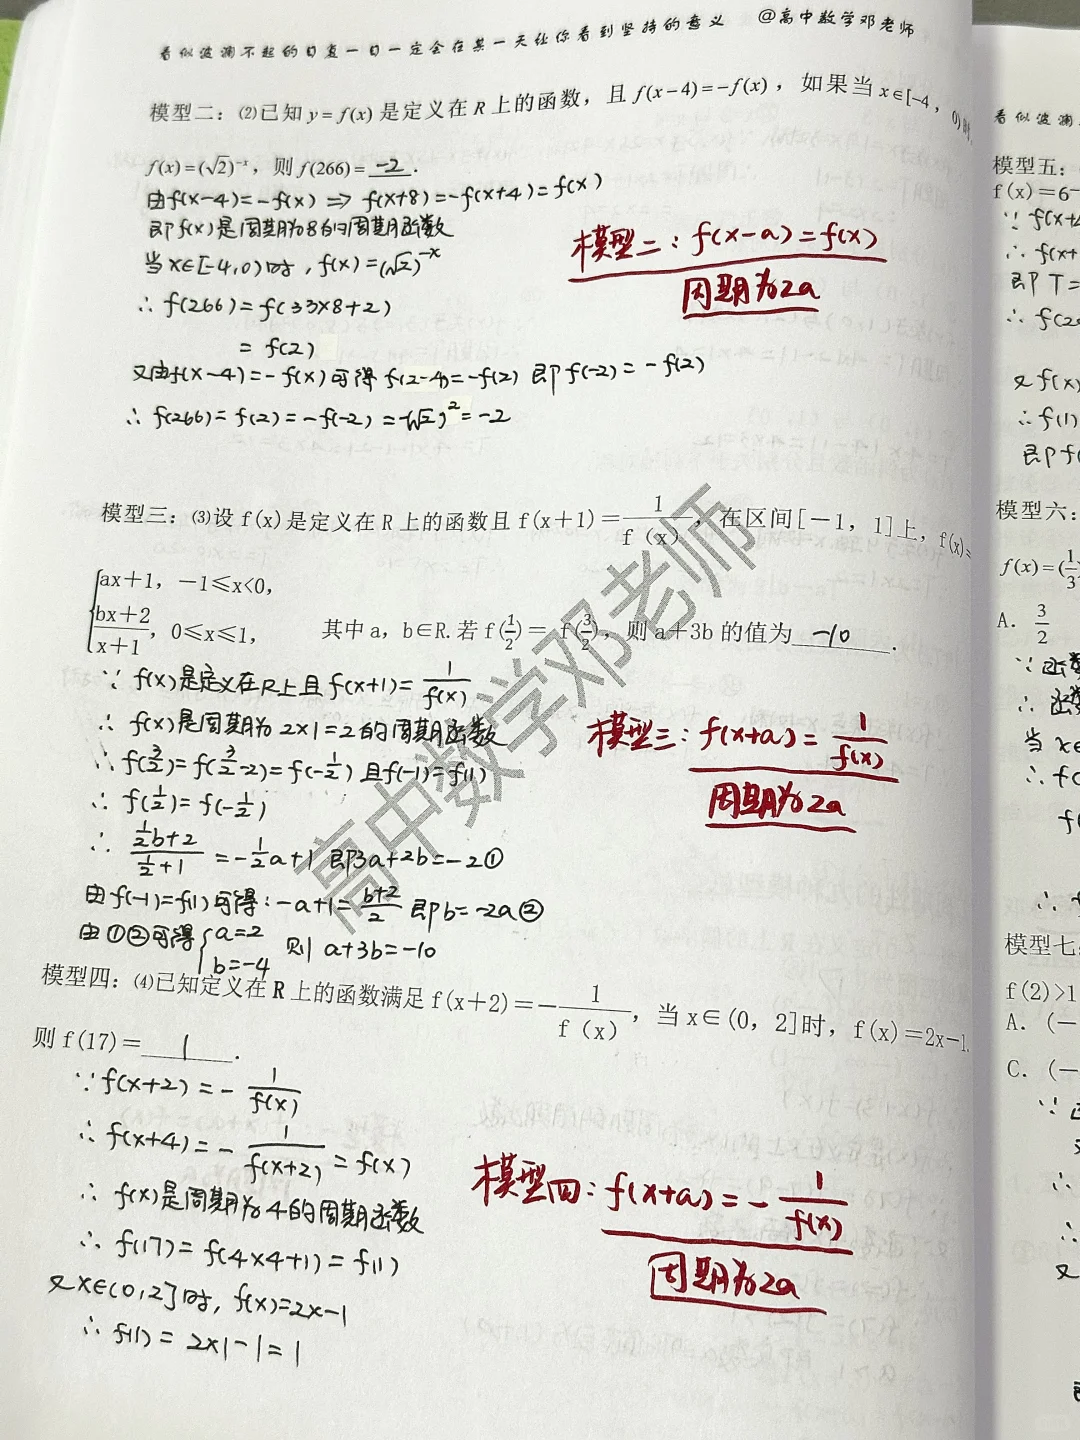 看似波澜不起的日复一日一定会在某一天让你看到坚持的意义 @高中数学邓老师
模型二：⑵已知 y=f(x) 是定义在 R 上的函数，且 f(x-4)=-f(x)，如果当 x∈[-4，0)时，
f(x)=(√2)^{-x}，则 f(266)= -2 .
由f(x-4)=-f(x) ⇒ f(x+8)=-f(x+4)=f(x)
即f(x)是周期为8的周期函数
当x∈[-4,0)时，f(x)=(√2)^{-x}
∴ f(266)=f(33×8+2)
= f(2)
又由f(x-4)=-f(x)可得 f(2-4)=-f(2) 即f(-2)=-f(2)
∴ f(266)=f(2)=-f(-2)=-(√2)²=-2
模型二：f(x-a)=f(x)
周期为2a
模型三：⑶设 f(x)是定义在 R 上的函数且 f(x+1)=1/f（x），在区间[－1，1]上，f(x)=
{ax+1，－1≤x<0，
(bx+2)/(x+1)，0≤x≤1， 其中 a，b∈R.若 f(1/2)= f(3/2)，则 a+3b 的值为 -10 .
∵ f(x)是定义在R上且 f(x+1)=1/f(x)
∴ f(x)是周期为2×1=2的周期函数
∴ f(3/2)=f(3/2-2)=f(-1/2) 且f(-1)=f(1)
∴ f(1/2)=f(-1/2)
∴ (1/2b+2)/(1/2+1)=-1/2a+1 即3a+2b=-2①
由f(-1)=f(1)可得：-a+1=(b+2)/2 即b=-2a②
由①②可得{a=2
b=-4 则 a+3b=-10
模型三：f(x+a)=1/f(x)
周期为2a
模型四：⑷已知定义在 R 上的函数满足 f(x+2)=－1/f（x），当 x∈(0，2]时，f(x)=2x-1.
则 f(17)= 1 .
∵f(x+2)=-1/f(x)
∴ f(x+4)=-1/f(x+2)=f(x)
∴ f(x)是周期为4的周期函数
∴ f(17)=f(4×4+1)=f(1)
又x∈(0,2]时，f(x)=2x-1
∴ f(1)=2×1-1=1
模型四：f(x+a)=-1/f(x)
周期为2a
高中数学邓老师
看似波澜
模型五：
f(x)=6
∵ f(x+
∴ f(x+
即 T=
∴ f(2
又f(x)
∴ f(1)
即f(
模型六：
f(x)=(1/3
A．3/2
∵函
∴ 函
当 x∈
∴ f
f
∴
模型七：
f(2)>1
A．(－
C．(－
∵
∴
∴
又